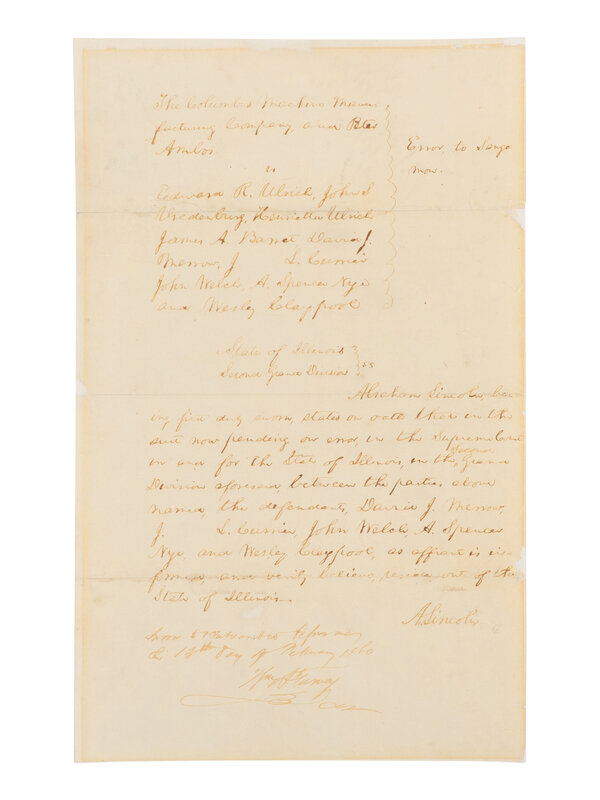 The Columbus Machine Manu-
facturing Company and Peter
Ambos
vs
Edward R. Ulrich, John S
Vredenburg, Henrietta Ulrich
James A. Barret David J.
Merrow, J L. Currier
John Welch, A. Spencer Nye
and Wesley Claypool
Error, to Sanga
mon.
State of Illinois
Second Grand Division } ss
Abraham Lincoln, be-
ing first duly sworn, states on oath that in the
suit now pending on error, in the Supreme Court
in and for the State of Illinois, in the second Grand
Division aforesaid, between the parties above
named, the defendants, David J. Merrow,
J. L. Currier, John Welch, A. Spencer
Nye, and Wesley Claypool, as affiant is in-
formed, and verily believes, reside out of the
State of Illinois.
A. Lincoln
Sworn & subscribed before me
the 13th Day of February 1860